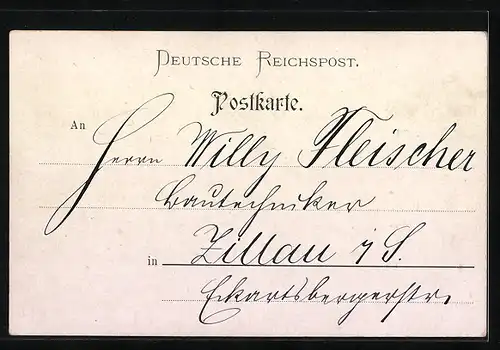 Deutsche Reichspost.
Postkarte.
An
Herrn Willy Fleischer
Bautechniker
in Zittau i/S.
Eckartsbergerstr.